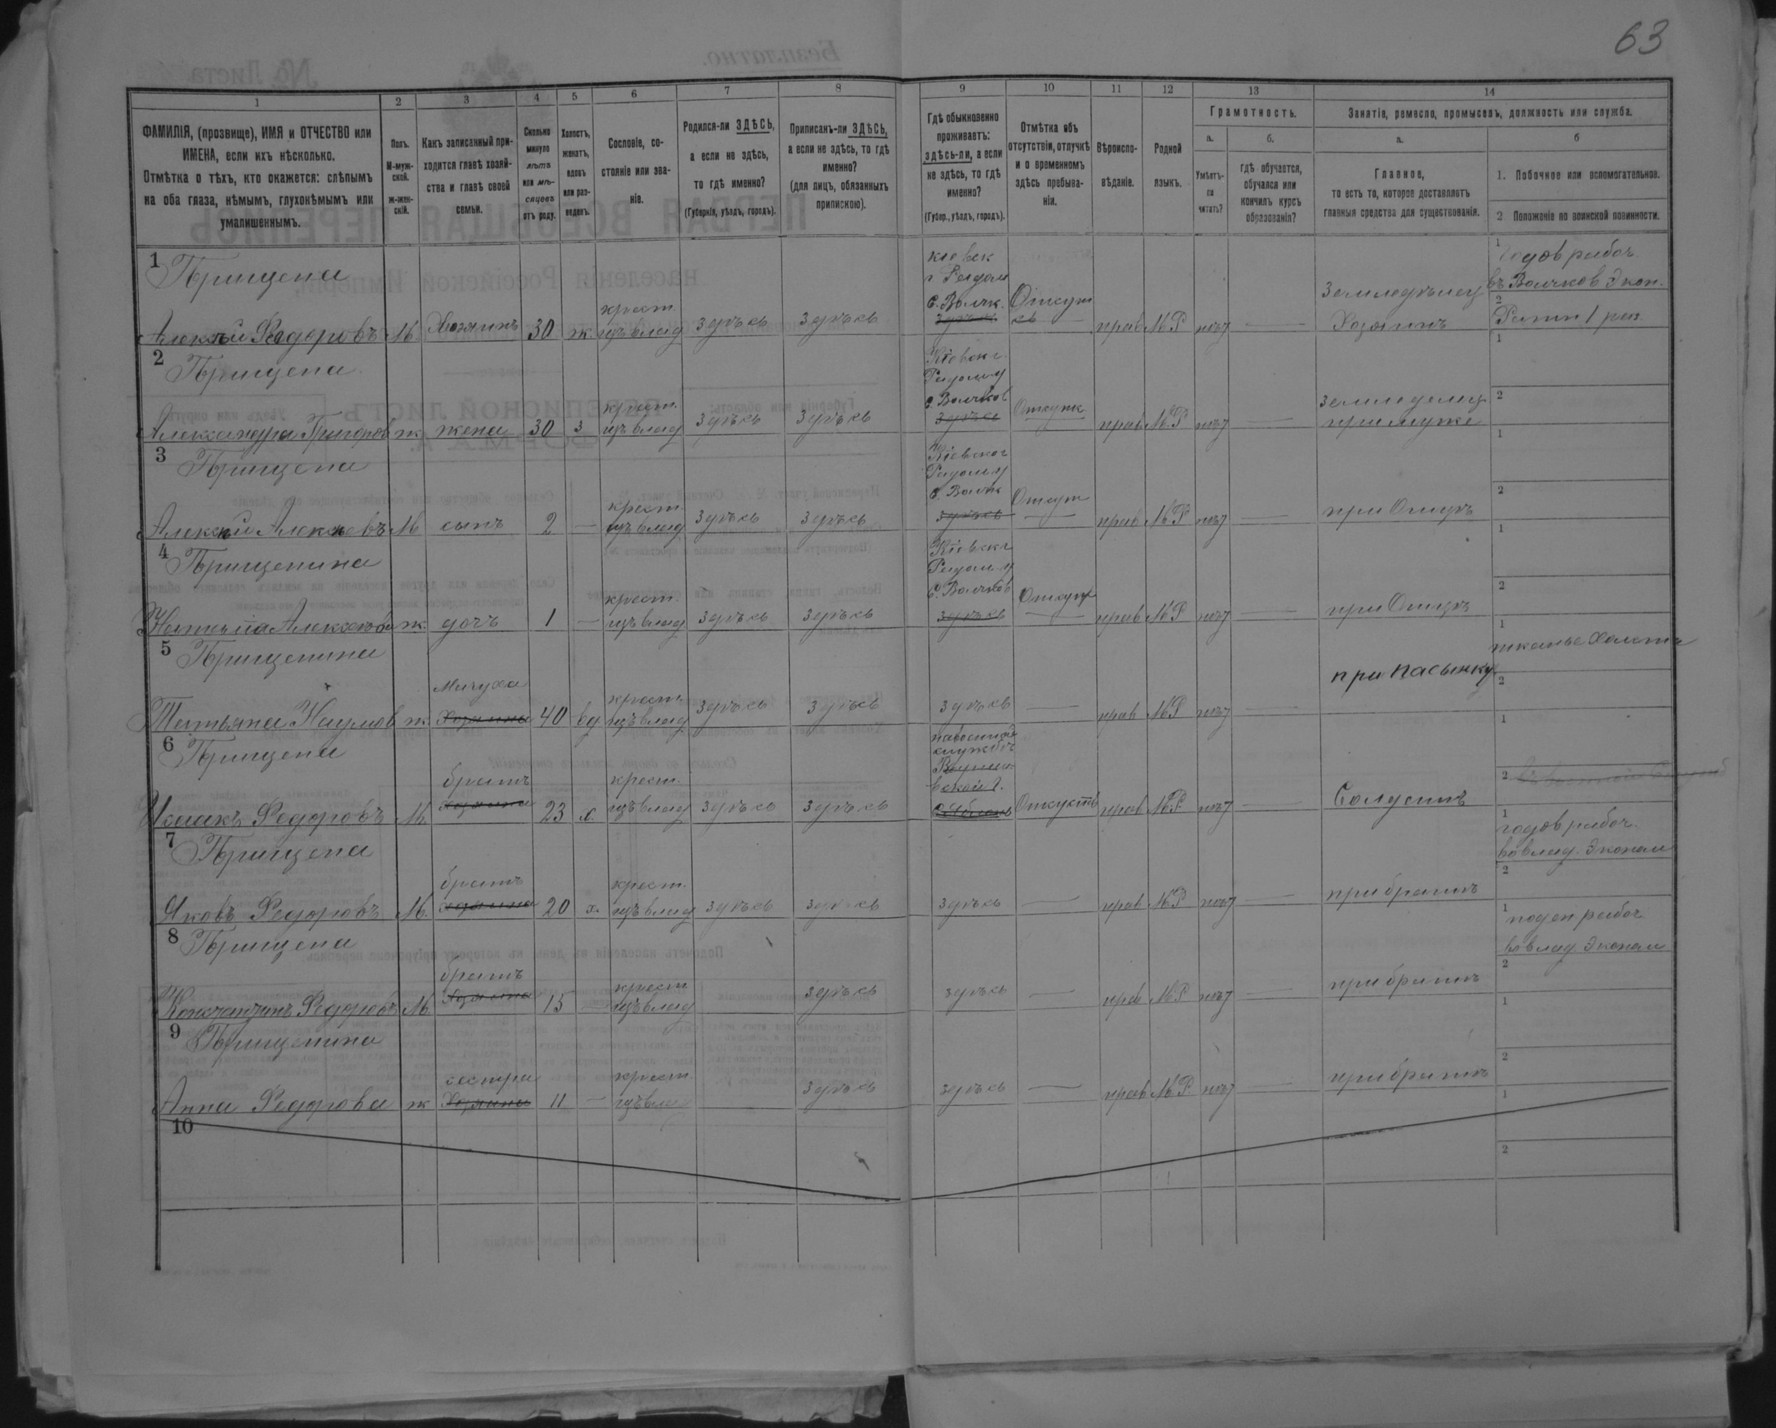 63
1 2 3 4 5 6 7 8 9 10 11 12 13 14
ФАМИЛІЯ, (прозвище), ИМЯ и ОТЧЕСТВО или
ИМЕНА, если ихъ нѣсколько.
Отмѣтка о тѣхъ, кто окажется: слѣпымъ
на оба глаза, нѣмымъ, глухонѣмымъ или
умалишеннымъ.
Полъ.
М-муж-
ской.
ж-жен-
скій.
Какъ записанный при-
ходится главѣ хозяй-
ства и главѣ своей
семьи.
Сколько
минуло
лѣтъ
или мѣ-
сяцевъ
отъ роду.
Холостъ,
женатъ,
вдовъ
или раз-
веденъ.
Сословіе, со-
стояніе или зва-
ніе.
Родился-ли ЗДѢСЬ,
а если не здѣсь,
то гдѣ именно?
(Губернія, уѣздъ, городъ).
Приписанъ-ли ЗДѢСЬ,
а если не здѣсь, то гдѣ
именно?
(для лицъ, обязанныхъ
припискою).
Гдѣ обыкновенно
проживаетъ:
здѣсь-ли, а если
не здѣсь, то гдѣ
именно?
(Губер., уѣздъ, городъ).
Отмѣтка объ
отсутствіи, отлучкѣ
и о временномъ
здѣсь пребыва-
ніи.
Вѣроиспо-
вѣданіе.
Родной
языкъ.
Грамотность.
а.
Умѣетъ-
ли
читать?
б.
гдѣ обучается,
обучался или
кончилъ курсъ
образованія?
Занятіе, ремесло, промыселъ, должность или служба.
а.
Главное,
то есть то, которое доставляетъ
главныя средства для существованія.
б
1. Побочное или вспомогательное.
2 Положеніе по воинской повинности.
1
Прищепа
Алексѣй Федоровъ М Хозяинъ 30 ж. крест. изъ влад здѣсь здѣсь
с. Волчк. здѣсь Отсутс прав М.Р нѣт —
Земледѣлец
Хозяинъ
1 годов рабоч
въ Волчков Экон.
2
2
Прищепа
Александра Григоров ж жена 30 з крест. изъ влад здѣсь здѣсь
Кіевск
с. Волчков здѣсь Отсутс. прав М.Р нѣт
земледелец
при муже
1
2
3
Прищепа
Алексѣй Алексѣевъ М сынъ 2 — крест. изъ влад здѣсь здѣсь
Кіевског
с. Волчк здѣсь Отсут — прав М.Р нѣт —
при Отцѣ
1
2
4
Прищепина
Алексѣева ж дочь 1 — крест. изъ влад здѣсь здѣсь
Кіевског
с. Волчков здѣсь Отсут — прав М.Р нѣт —
при Отцѣ
1
2
5
Прищепина
Татьяна Наумов ж Мачуха хозяина 40 вд крест. изъ влад здѣсь здѣсь
здѣсь — прав М.Р нѣт —
при пасынку
1
тканье холста
2
6
Прищепа
Исаакъ Федоровъ М. братъ хозяина 23 х. крест. изъ влад здѣсь здѣсь
Отсутств прав М.Р. нѣт —
Солдатъ
1
2
7
Прищепа
Яковъ Федоровъ М. братъ хозяина 20 х. крест. изъ влад здѣсь здѣсь
здѣсь — прав М.Р нѣт —
при братѣ
1
годов рабоч.
во влад. Эконом
2
8
Прищепа
Константинъ Федоровъ М. братъ хозяина 15 — крест изъ влад здѣсь
здѣсь — прав М.Р нѣт —
при братѣ
1
поден рабоч
во влад. Эконом
2
9
Прищепина
Анна Федорова ж сестра хозяина 11 — крест. изъ влад здѣсь
здѣсь — прав М.Р нѣт —
при братѣ
1
2
10
1
2